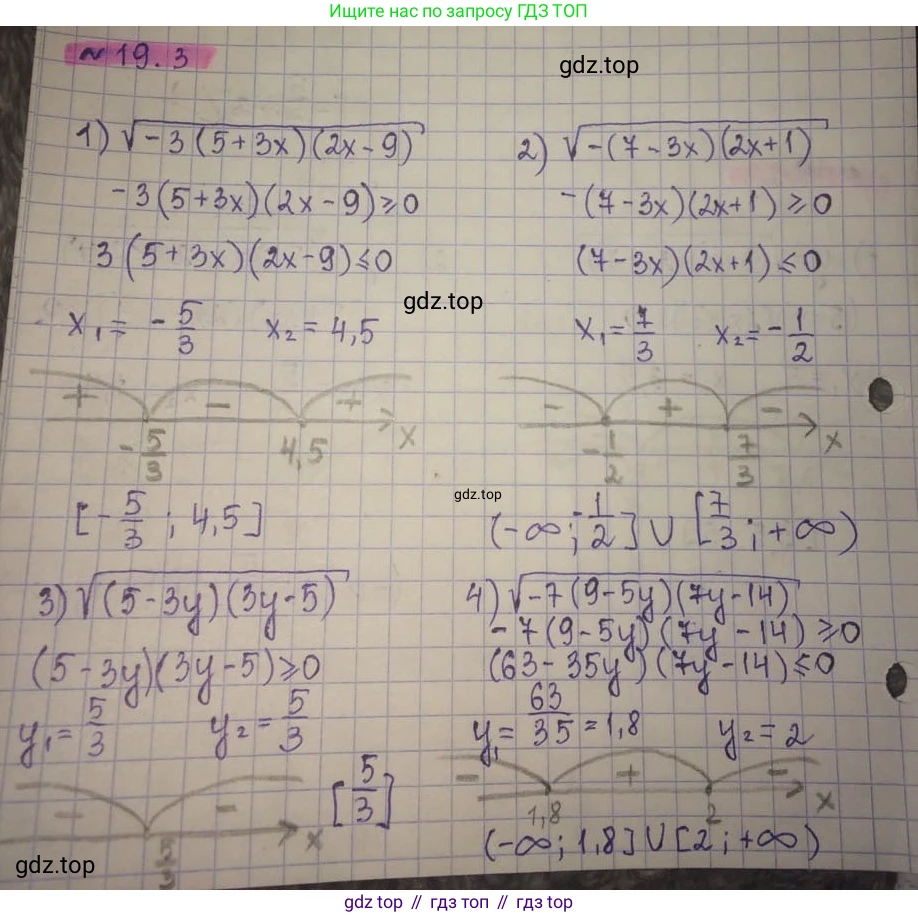 Ищите нас по запросу ГДЗ ТОП
№ 19.3
gdz.top
1) √(-3(5+3x)(2x-9))
-3(5+3x)(2x-9)≥0
3(5+3x)(2x-9)≤0
gdz.top
x₁ = -5/3 x₂ = 4,5
+ - +
-5/3 4,5 x
[-5/3 ; 4,5]
2) √(-(7-3x)(2x+1))
-(7-3x)(2x+1)≥0
(7-3x)(2x+1)≤0
x₁ = 7/3 x₂ = -1/2
- + -
-1/2 7/3 x
gdz.top
(-∞; -1/2] ∪ [7/3; +∞)
3) √((5-3y)(3y-5))
(5-3y)(3y-5)≥0
y₁ = 5/3 y₂ = 5/3
- -
5/3 x
[5/3]
4) √(-7(9-5y)(7y-14))
-7(9-5y)(7y-14)≥0
(63-35y)(7y-14)≤0
y₁ = 63/35 = 1,8 y₂ = 2
- + -
1,8 2 x
(-∞; 1,8] ∪ [2; +∞)
gdz.top
gdz топ // гдз топ // gdz top